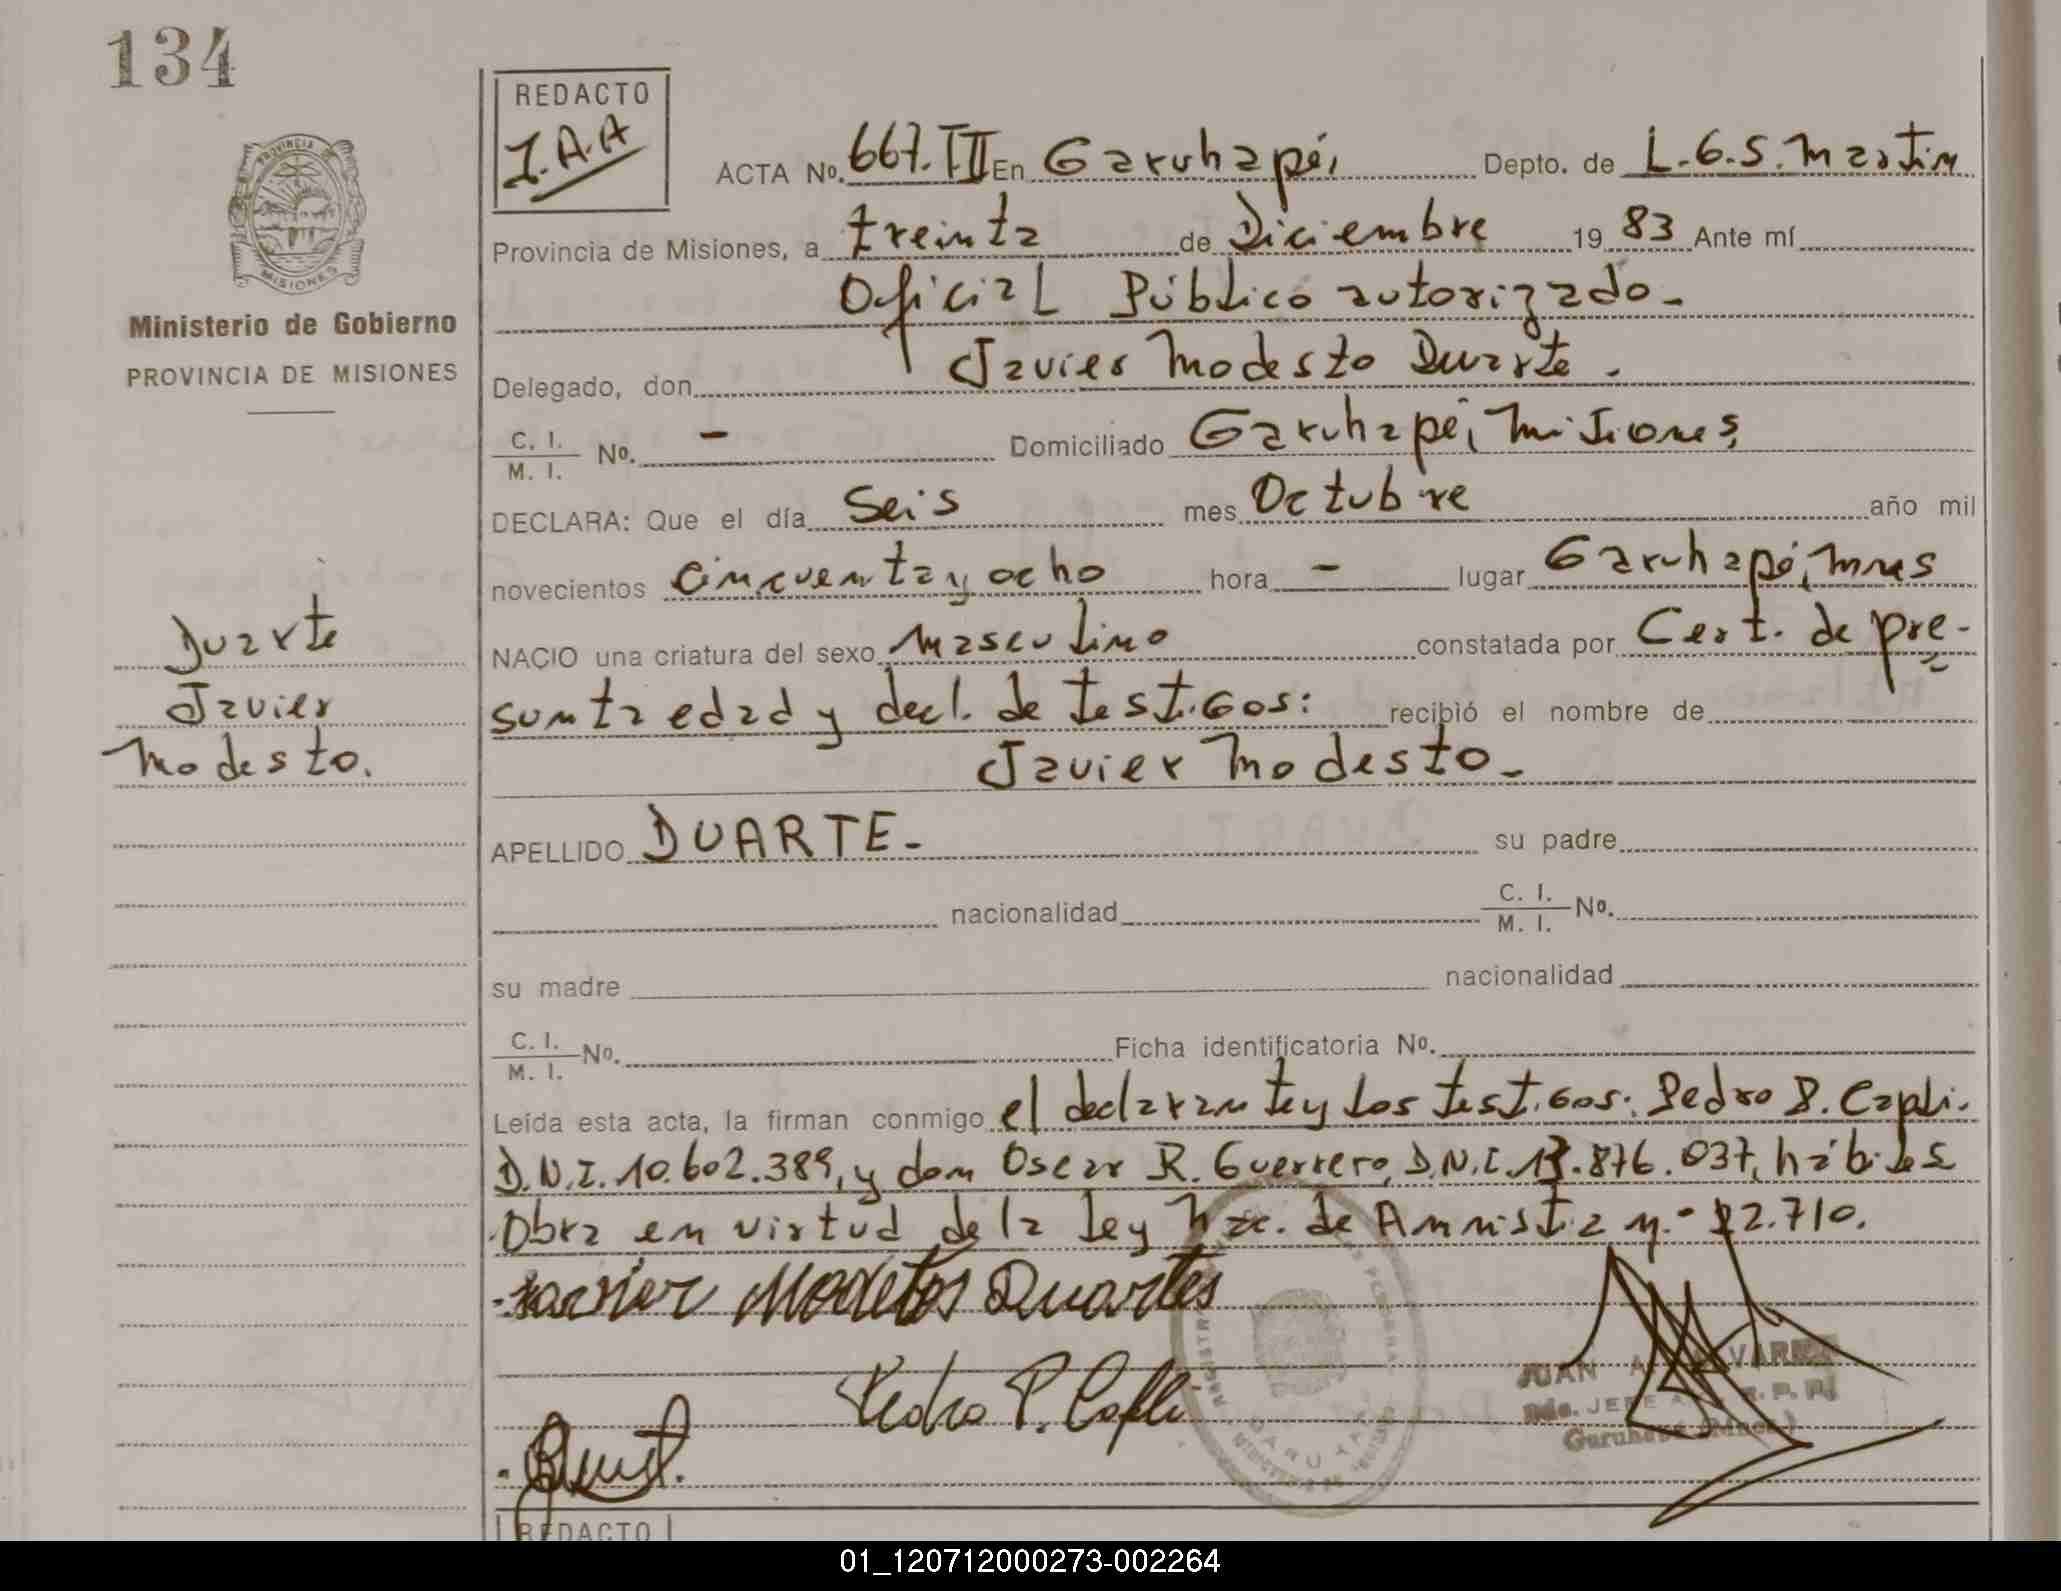 134
REDACTO
J.A.A
ACTA Nº. 667. TII En Garuhapé, Depto. de L.G.S. Martin
PROVINCIA DE MISIONES
Provincia de Misiones, a treinta de Diciembre 19 83 Ante mí
Oficial Público autorizado.-
Ministerio de Gobierno
PROVINCIA DE MISIONES
Delegado, don Javier Modesto Duarte.
C. I. / M. I. Nº. - Domiciliado Garuhapé, Misiones,
DECLARA: Que el día Seis mes Octubre año mil
novecientos cincuenta y ocho hora - lugar Garuhapé, Mnes
Duarte
Javier
Modesto.
NACIO una criatura del sexo masculino constatada por Cert. de pre-
sunta edad y decl. de testigos: recibió el nombre de
Javier Modesto.-
APELLIDO DUARTE.- su padre
nacionalidad C. I. / M. I. Nº.
su madre nacionalidad
C. I. / M. I. Nº. Ficha identificatoria Nº.
Leída esta acta, la firman conmigo el declarante y los testigos: Pedro P. Capli.
D.N.I. 10.602.389, y don Oscar R. Guerrero, D.N.I. 13.876.037, hábiles
Obra en virtud de la ley Nac. de Amnistia n.º 22.710.
Javier Modetos Duartes
Pedro P. Capli
JUAN A. ALVAREZ
JEFE R. P. P.
Garuhapé (Mnes.)
REDACTO
01_120712000273-002264